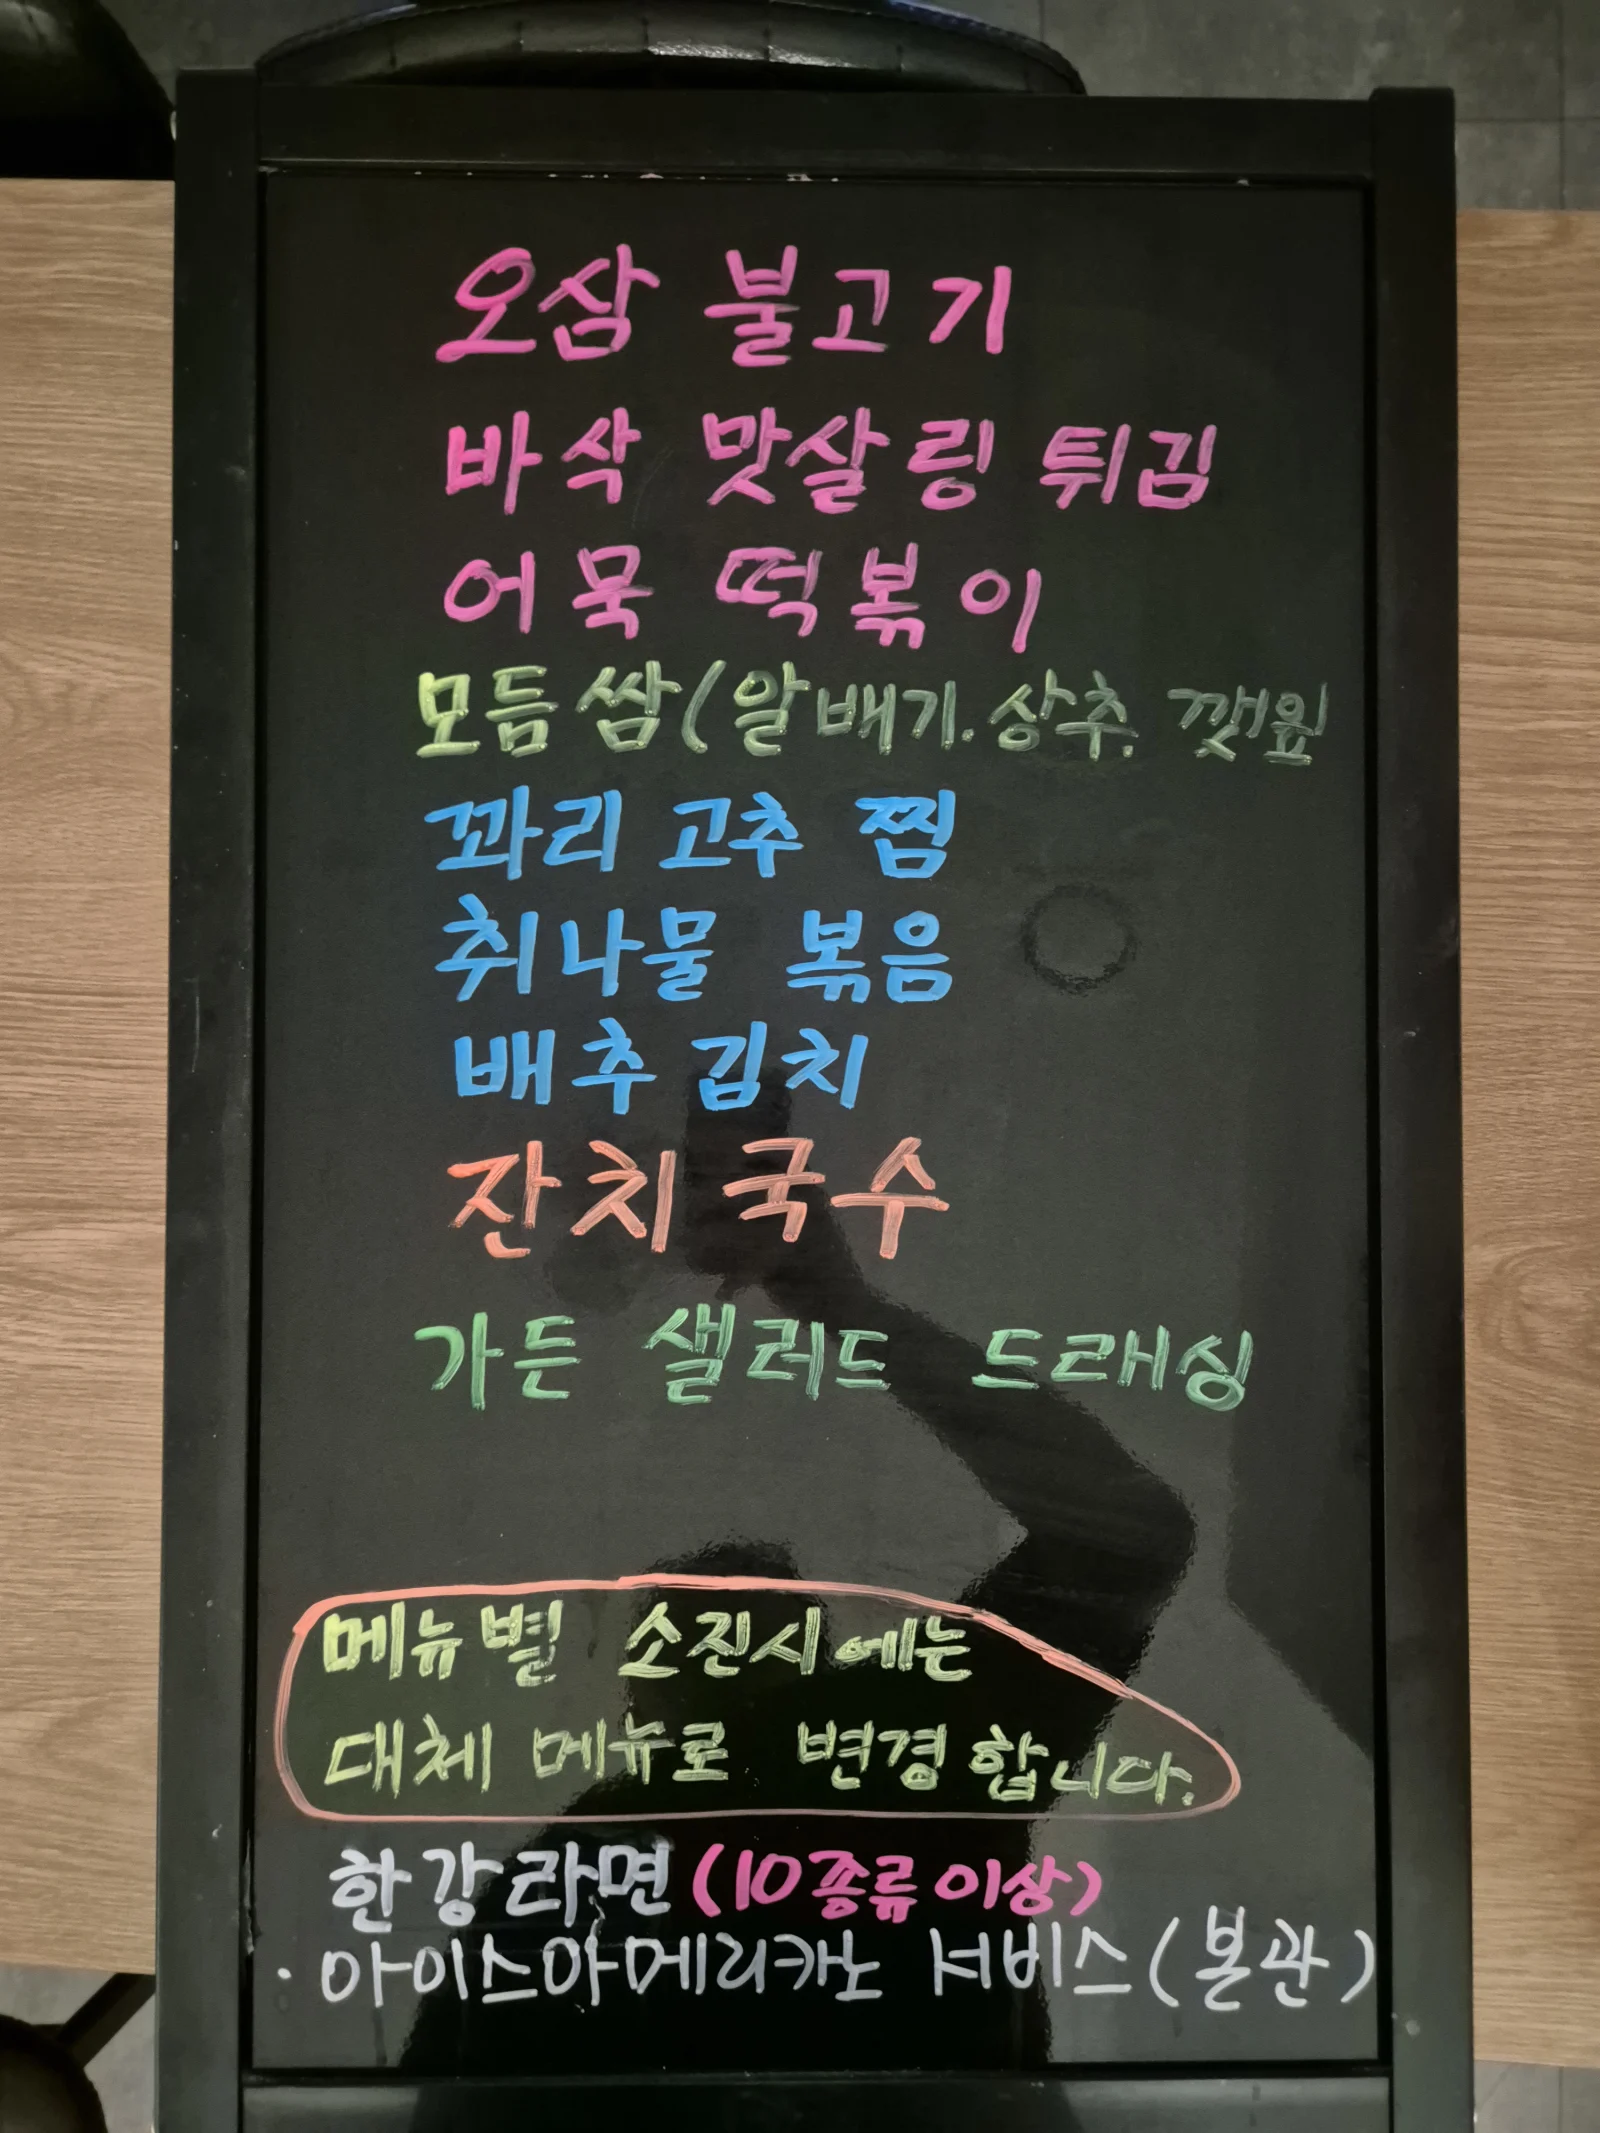 오삼 불고기
바삭 맛살링 튀김
어묵 떡볶이
모듬쌈(알배기.상추.깻잎
꽈리고추 찜
취나물 볶음
배추김치
잔치국수
가든 샐러드 드래싱
메뉴별 소진시에는
대체 메뉴로 변경합니다.
한강라면(10종류이상)
·아이스아메리카노 서비스(본관)